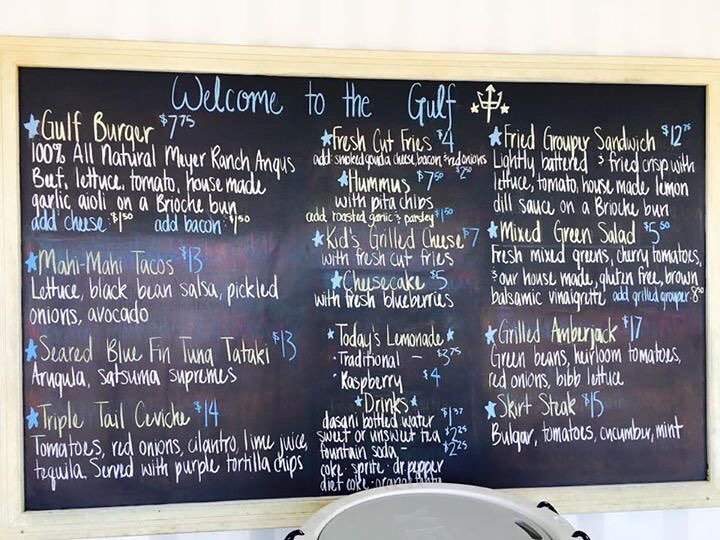 Welcome to the Gulf
Gulf Burger $7.75
100% All Natural Meyer Ranch Angus
Beef, lettuce, tomato, house made
garlic aioli on a Brioche bun
add cheese $1.50 add bacon $1.50
Mahi-Mahi Tacos $13
Lettuce, black bean salsa, pickled
onions, avocado
Seared Blue Fin Tuna Tataki $13
Arugula, satsuma supremes
Triple Tail Ceviche $14
Tomatoes, red onions, cilantro, lime juice,
tequila. Served with purple tortilla chips
Fresh Cut Fries $4
add: smoked gouda cheese, bacon & red onions $2.50
Hummus $7.50
with pita chips
add roasted garlic & parsley $1.50
Kid's Grilled Cheese $7
with fresh cut fries
Cheesecake $5
with fresh blueberries
Today's Lemonade
· Traditional — $3.75
· Raspberry $4
Drinks
dasani bottled water $1.37
sweet or unsweet tea $2.25
fountain soda - $2.25
coke · sprite · dr. pepper
diet coke ·
Fried Grouper Sandwich $12.75
Lightly battered & fried crisp with
lettuce, tomato, house made lemon
dill sauce on a Brioche bun
Mixed Green Salad $5.50
Fresh mixed greens, cherry tomatoes,
& our house made, gluten free, brown
balsamic vinaigrette add grilled grouper
Grilled Amberjack $17
Green beans, heirloom tomatoes,
red onions, bibb lettuce
Skirt Steak $15
Bulgar, tomatoes, cucumber, mint